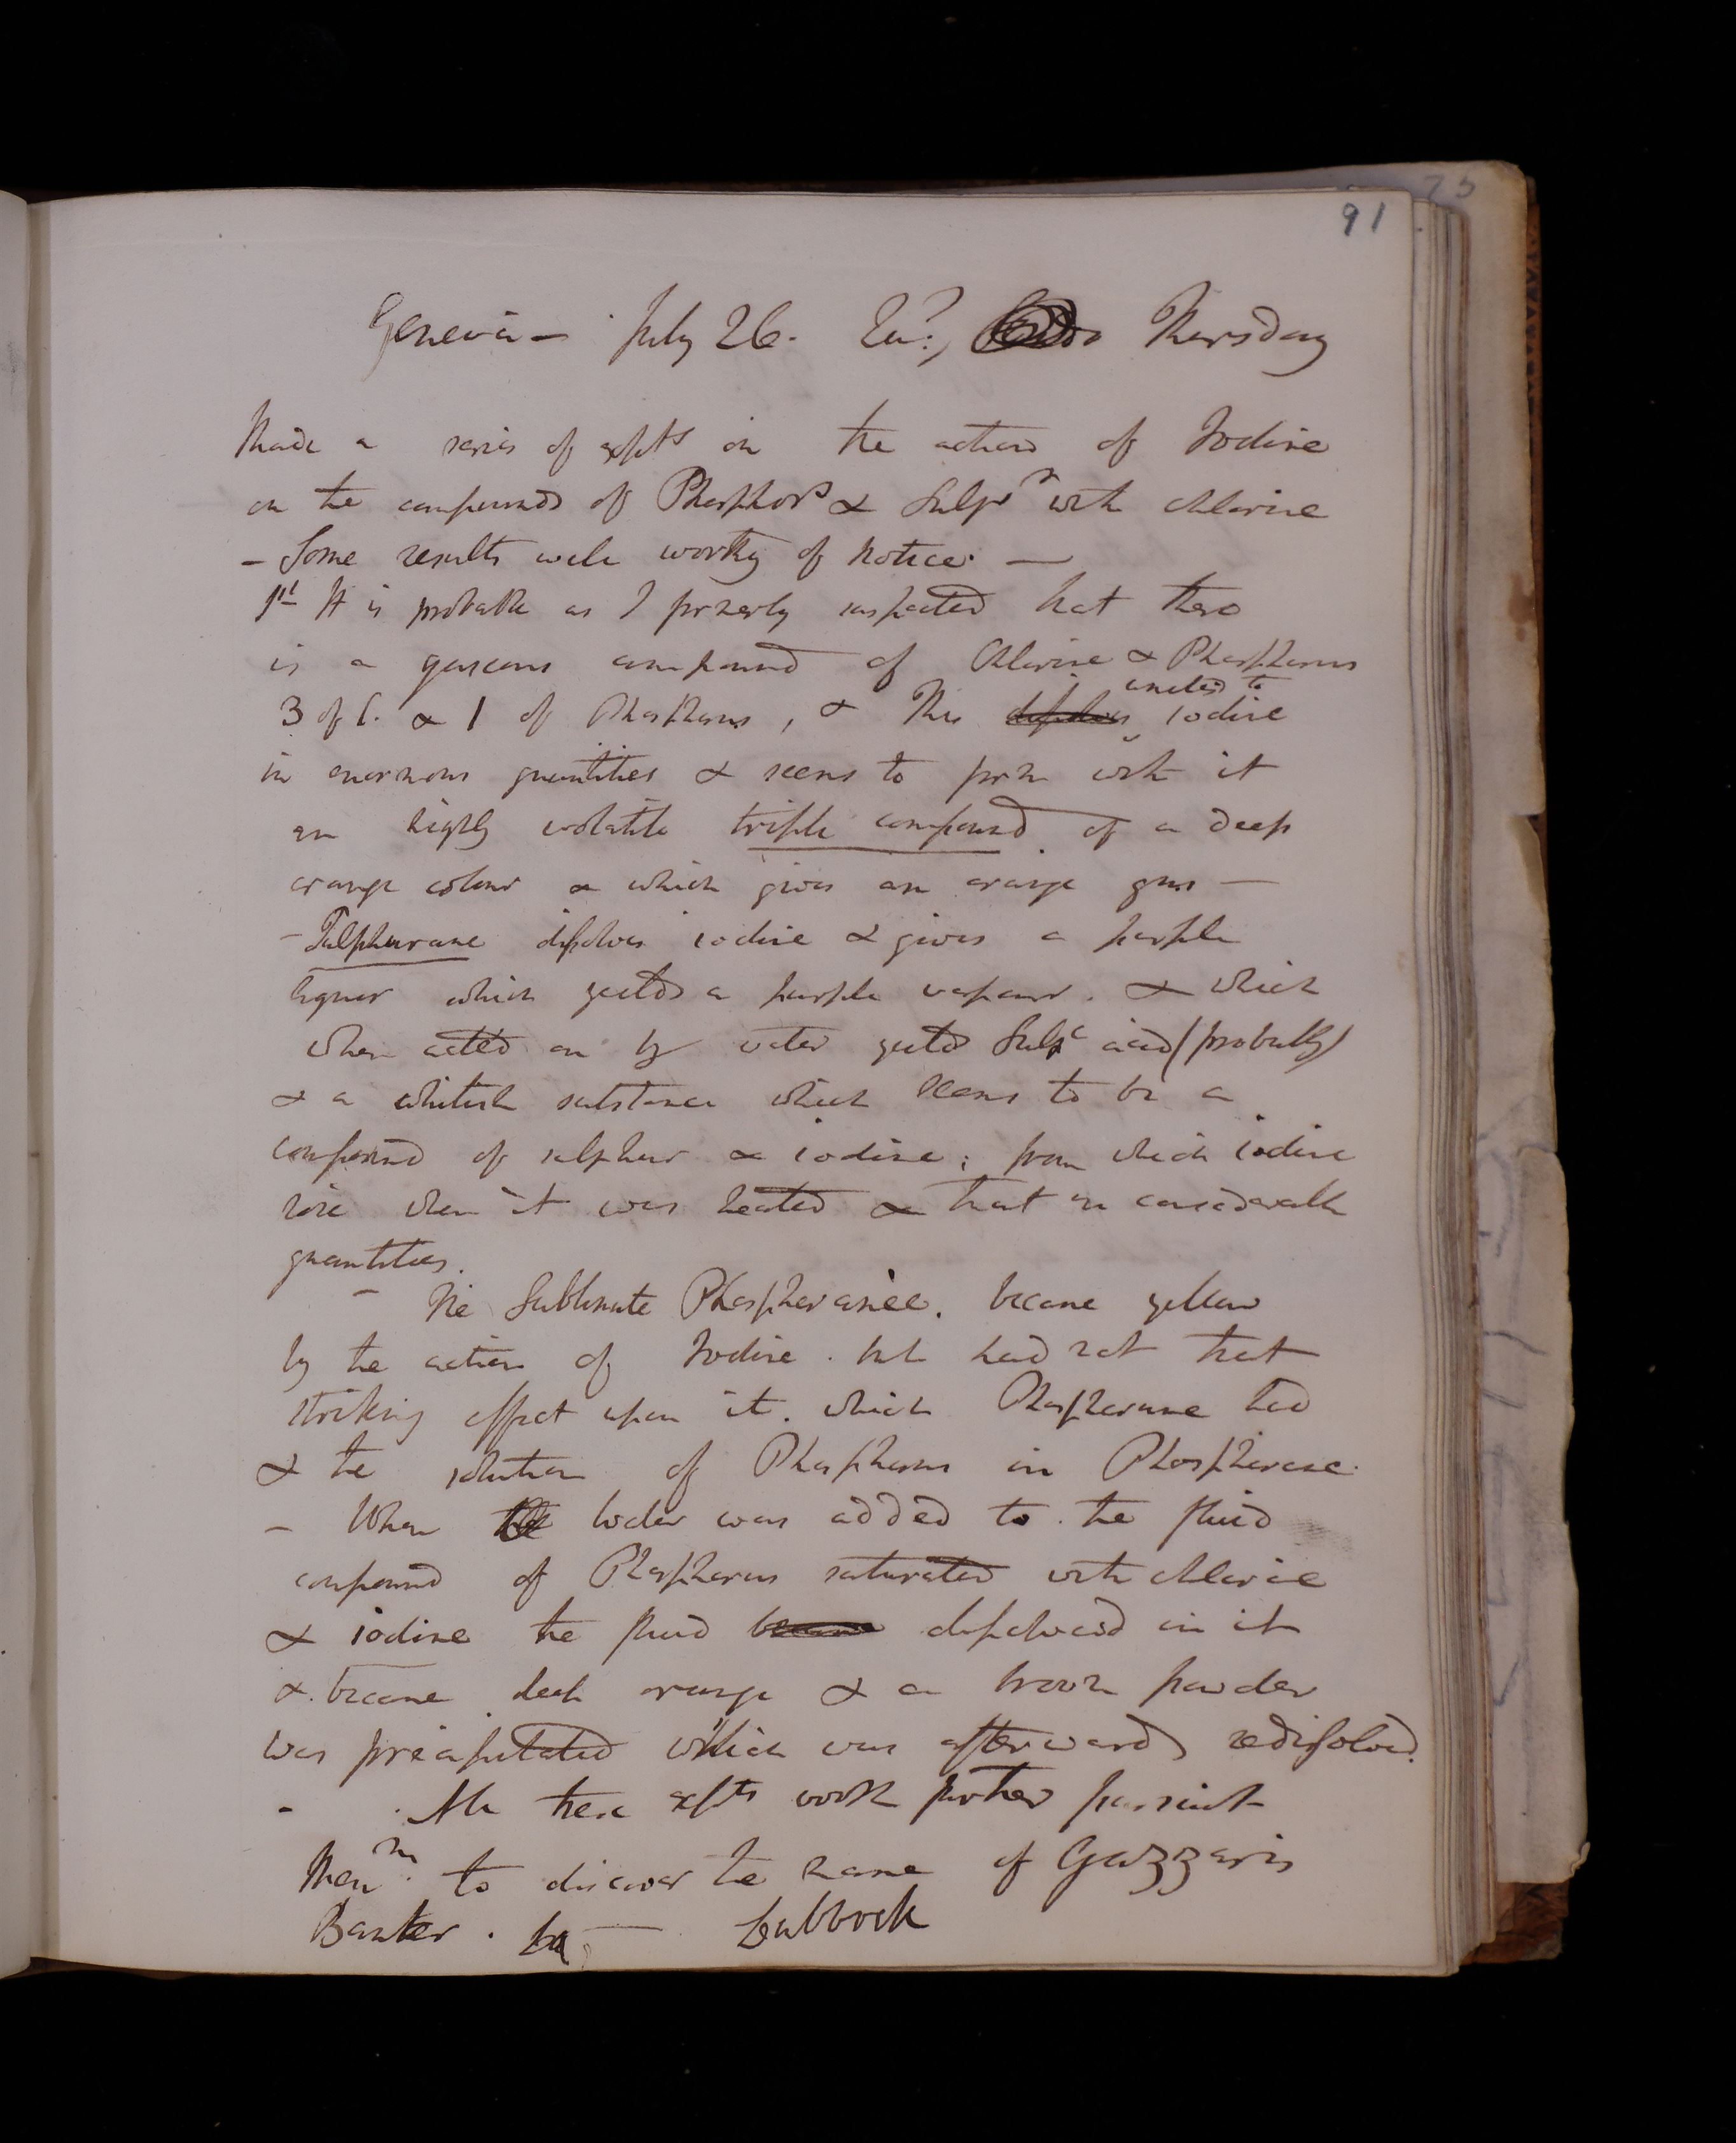 91
Geneva – July 26. Thursday
Made a series of expts on the action of Iodine
on the compounds of Phosphors & Sulpr with chlorine
– Some results well worthy of notice. —
1st It is probable as I formerly suspected that there
is a gaseous compound of Chlorine & Phosphorus
3 of C. & 1 of Phosphorus, & this dissolves united to iodine
in enormous quantities & seems to form with it
an highly volatile triple compound of a deep
orange colour & which gives an orange gas —
– Sulphurane dissolves iodine & gives a purple
liquor which yeilds a purple vapour. & which
when acted on by water yeilds Sulpc acid (probably)
& a whitish substance which seems to be a
compound of sulphur & iodine; from which iodine
rose when it was heated & that in considerable
quantities.
– The Sublimate Phosphoranee. became yellow
by the action of Iodine. but had not that
striking effect upon it. which Phosphorane had
& the solution of Phosphorus in Phosphorane.
– When the water was added to the fluid
compound of Phosphorus saturated with chlorine
& iodine the fluid became dissolved in it
& became deep orange & a brown powder
was precipitated which was afterwards redissolved.
– All these expts worth further pursuit
Memm. to discover the name of Gazzaris
Banker. — Lubbock